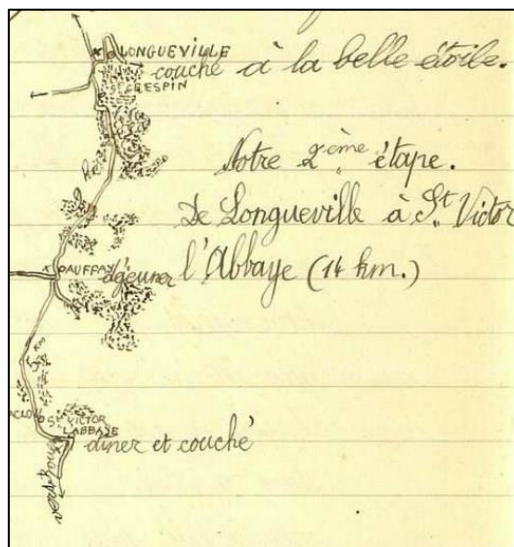 LONGUEVILLE
couché à la belle étoile.
St CRESPIN
Notre 2ème étape.
De Longueville à St Victor
l'Abbaye (14 km.)
AUFFAY
déjeuner
Km
St VICTOR
L'ABBAYE
dîner et couché